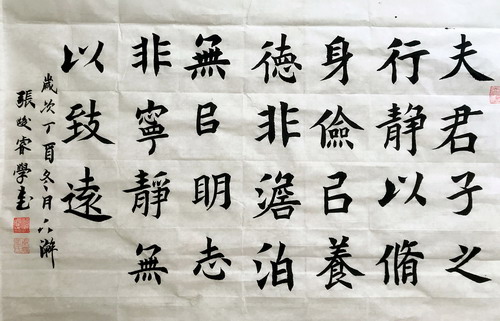 夫君子之
行静以脩
身儉㠯養
徳非澹泊
無㠯明志
非寧靜無
以致遠
歲次丁酉冬月下澣
張睿學書